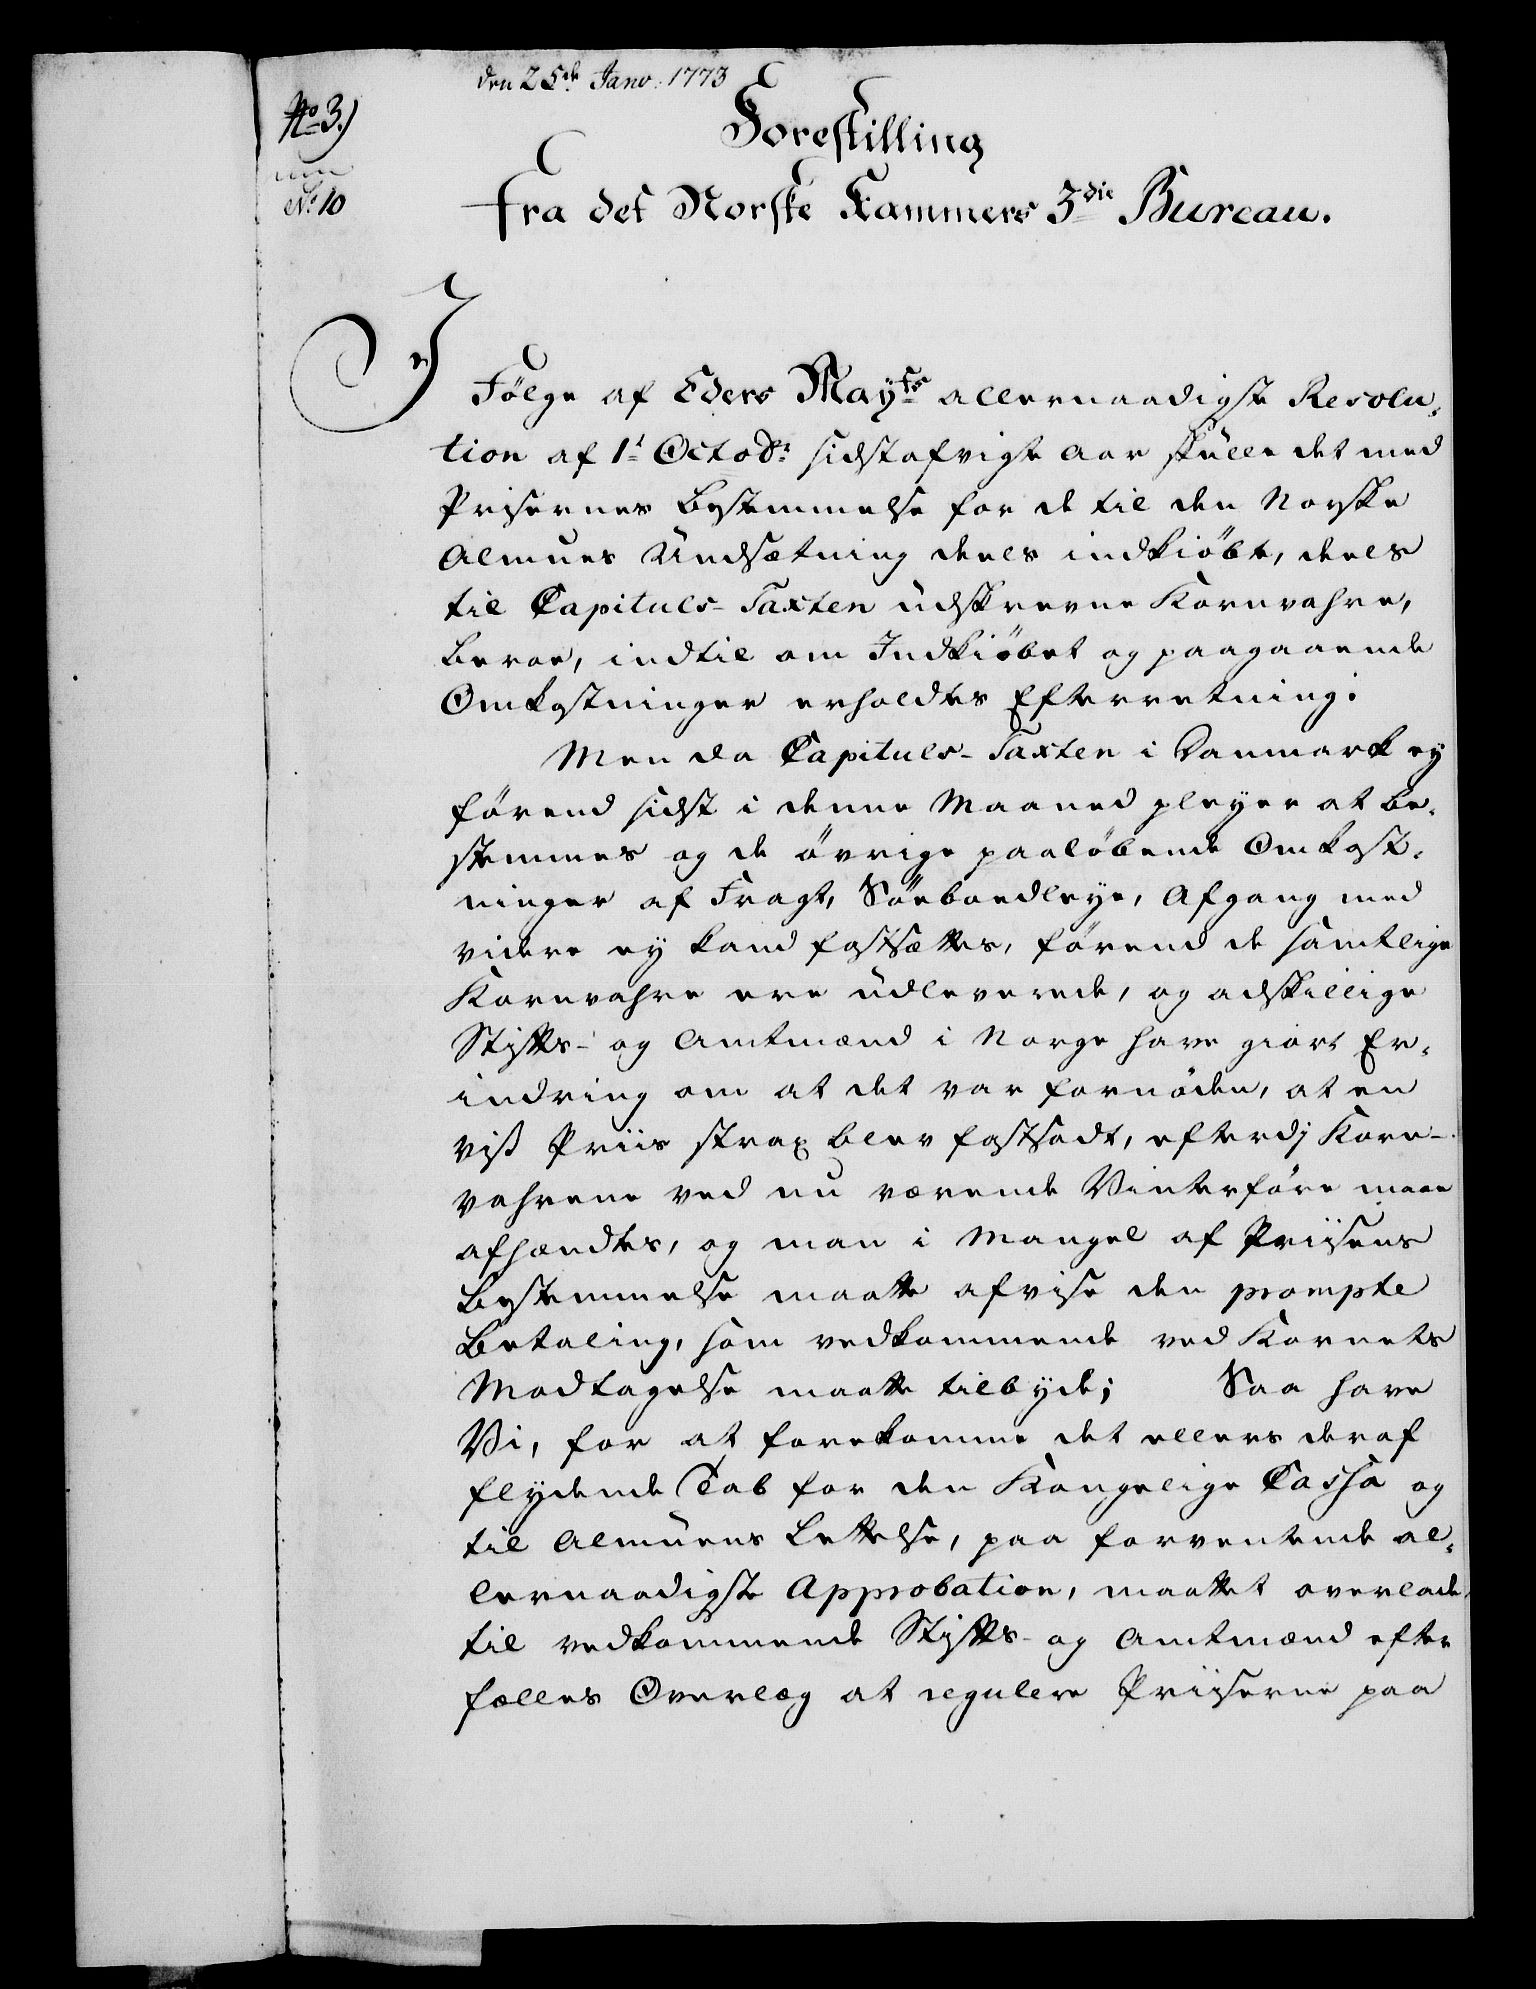 den 25de Janv: 1773
No 3.)
No 10
Forestilling
fra det Norske Kammers 3die Bureau.
I
Følge af Eders Mayts allernaadigste Resolu-
tion af 1t Octobr: sidstafvigte Aar skulle det med
Prisernes Bestemmelse for de til den Norske
Almues Undsætning deels indkiøbte, deels
til Capituls-Taxten udskrevne Kornvahre,
beroe, indtil om Indkiøbet og paagaaende
Omkostninger erholdtes Efterretning.
Men da Capituls-Taxten i Danmark ey
førend sidst i denne Maaned pleyer at be-
stemmes og de øvrige paaløbende Omkost-
ninger af Fragt, Söeboedleye, Afgang med
videre ey kand fastsættes, førend de samtlige
Kornvahre ere udleverede, og adskillige
Stifts- og Amtmænd i Norge have giort Er-
indring om at det var fornøden, at en
viß Priis strax blev fastsadt, efterdj Korn-
vahrene ved nu værende Vinterføre maae
afhændtes, og man i Mangel af Priisens
Bestemmelse maatte afvise den prompte
Betaling, som vedkommende ved Kornets
Modtagelse maatte tilbyde; Saa have
Vi, for at forekomme det ellers deraf
flydende Tab for den Kongelige Cassa og
til Almuens Lettelse, paa forventende al-
lernaadigste Approbation, maattet overlade
til vedkommende Stifts- og Amtmænd efter
fælles Overlæg at regulere Priiserne paa